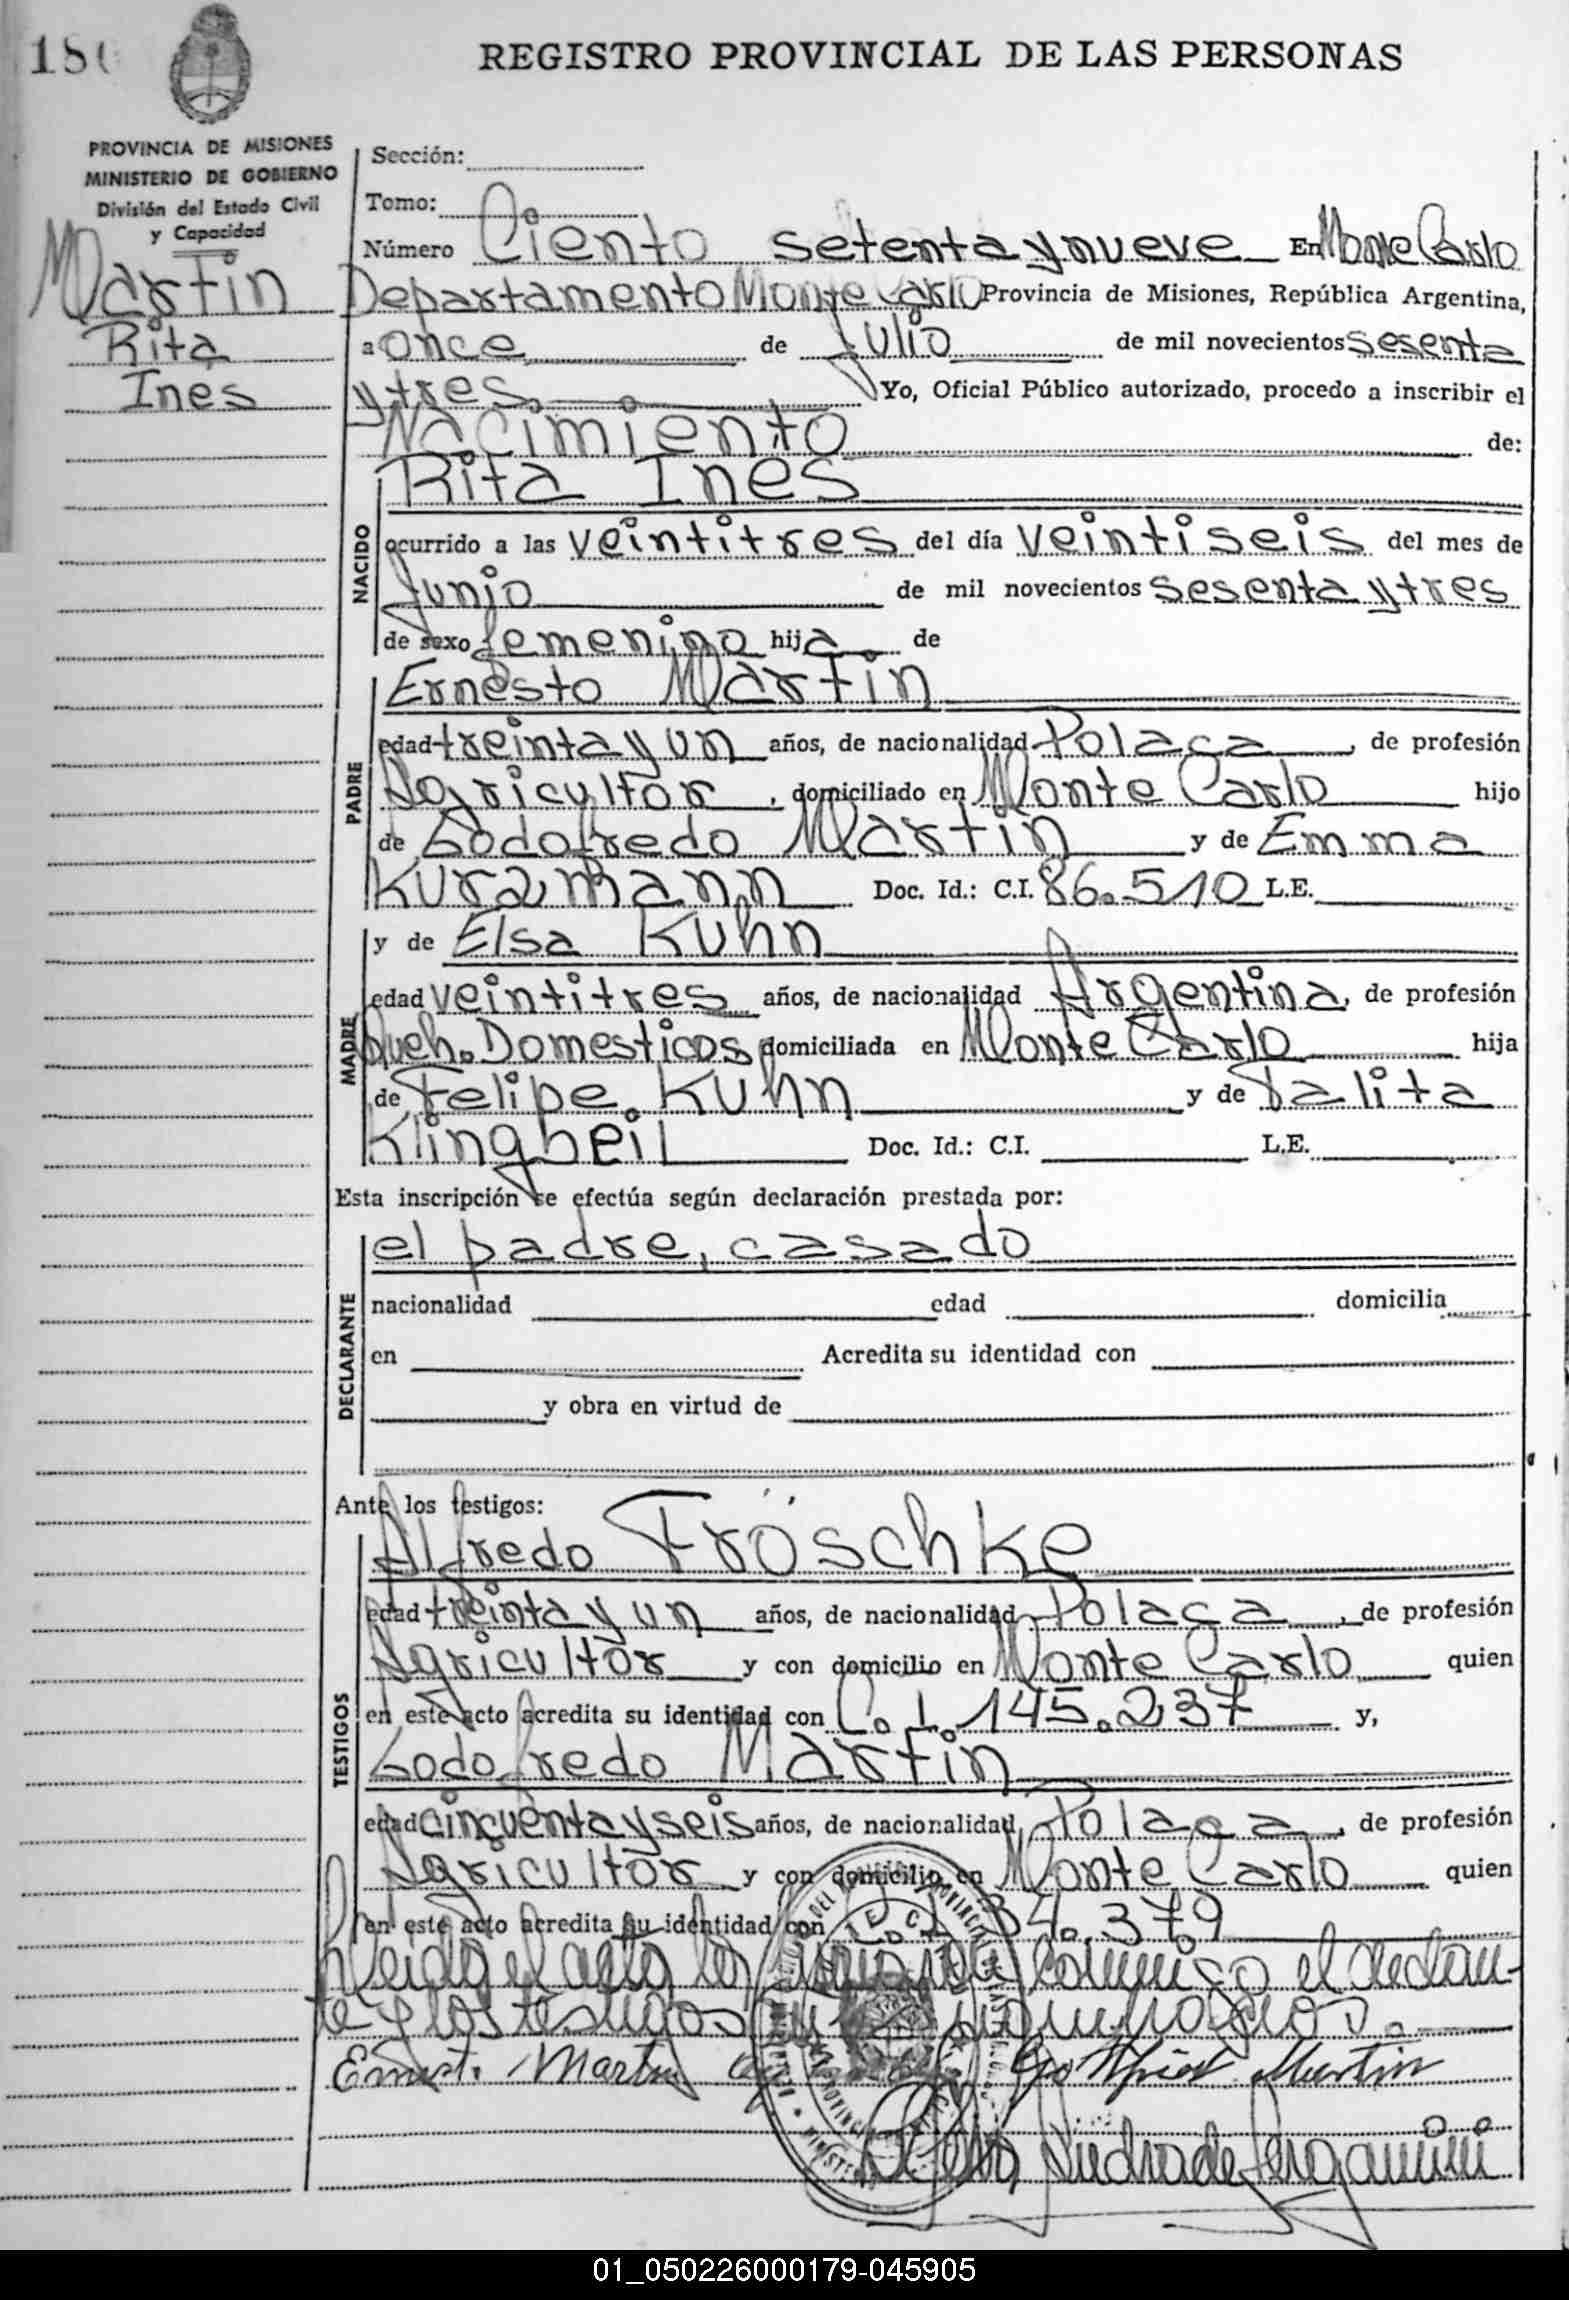 180
REGISTRO PROVINCIAL DE LAS PERSONAS
PROVINCIA DE MISIONES
MINISTERIO DE GOBIERNO
División del Estado Civil
y Capacidad
Martin
Rita
Ines
Sección:
Tomo:
Número Ciento setenta y nueve En Monte Carlo
Departamento Monte Carlo Provincia de Misiones, República Argentina,
a once de Julio de mil novecientos sesenta
y tres. Yo, Oficial Público autorizado, procedo a inscribir el
Nacimiento de:
Rita Ines
NACIDO
ocurrido a las veintitres del día veintiseis del mes de
Junio de mil novecientos sesenta y tres
de sexo femenino hija de
Ernesto Martin
PADRE
edad treinta y un años, de nacionalidad Polaca, de profesión
Agricultor, domiciliado en Monte Carlo hijo
de Godofredo Martin y de Emma
Kurzmann Doc. Id.: C.I. 86.510 L.E.
y de Elsa Kuhn
MADRE
edad veintitres años, de nacionalidad Argentina, de profesión
Queh. Domesticos domiciliada en Monte Carlo hija
de Felipe Kuhn y de Talita
Klingbeil Doc. Id.: C.I. L.E.
Esta inscripción se efectúa según declaración prestada por:
el padre, casado
DECLARANTE
nacionalidad edad domicilia
en Acredita su identidad con
y obra en virtud de
Ante los testigos:
Alfredo Fröschke
TESTIGOS
edad treinta y un años, de nacionalidad Polaca, de profesión
Agricultor y con domicilio en Monte Carlo quien
en este acto acredita su identidad con C.I. 145.237 y,
Godofredo Martin
edad cincuenta y seis años, de nacionalidad Polaca, de profesión
Agricultor y con domicilio en Monte Carlo quien
en este acto acredita su identidad con 34.379
Leida el acta la conmigo el declaran-
te y los testigos
Ernst Martin Gottfried Martin
01_050226000179-045905